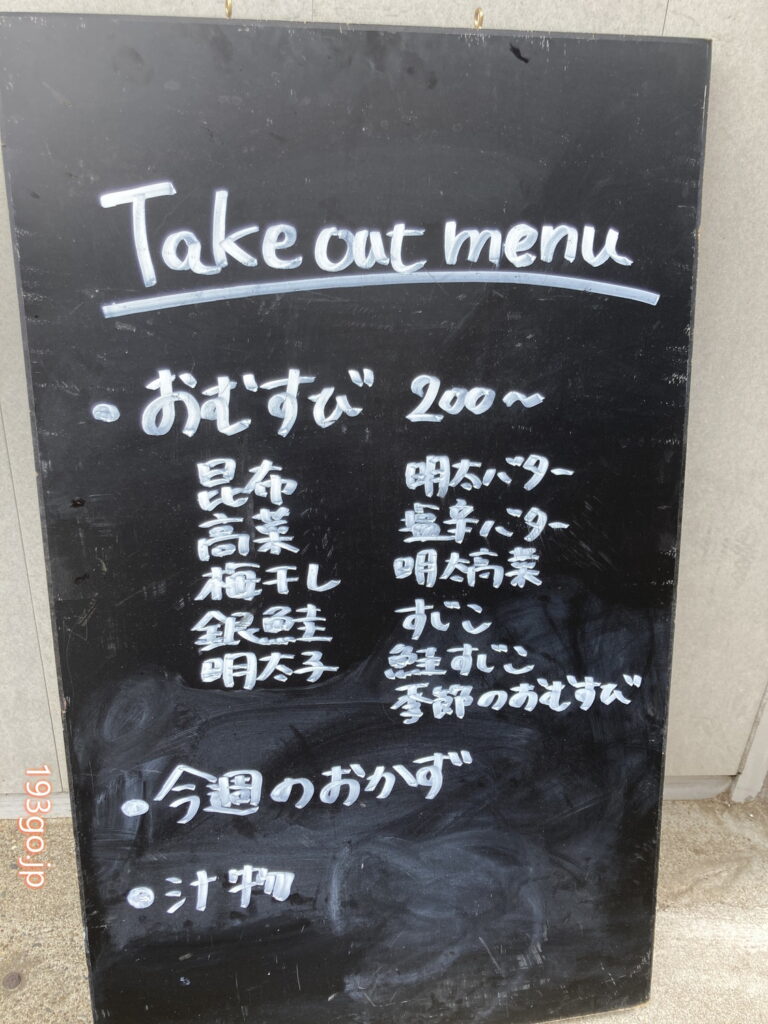 Take out menu
・おむすび 200〜
昆布
高菜
梅干し
銀鮭
明太子
明太バター
塩辛バター
明太高菜
すじこ
鮭すじこ
季節のおむすび
・今週のおかず
・汁物
193go.jp